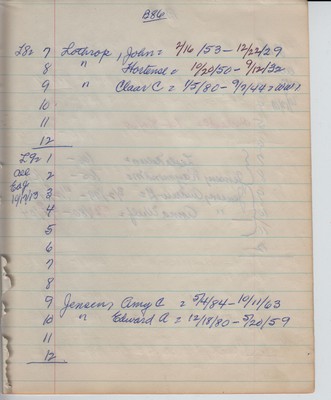 B86
L8= 7 Lothrop, John = 2/16/53 - 12/22/29
8 " Hortense = 10/20/50 - 9/12/32
9 " Claar C = 1/5/80 - 9/7/44 =
10
11
12
L9= 1
2
3
4
5
6
7
8
9 Jensen, Amy C = 5/4/84 - 10/11/63
10 " Edward A = 12/18/80 - 5/20/59
11
12